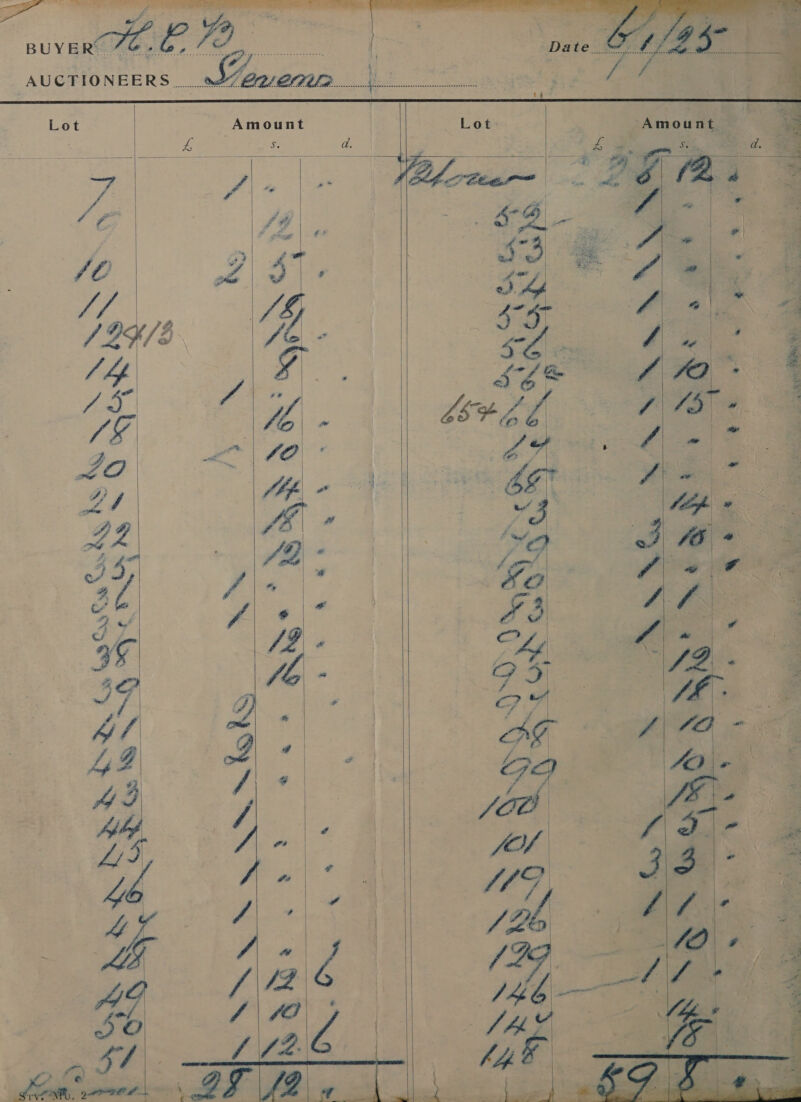 BUYER H.C.B Date 6/1/25
AUCTIONEERS Stevens
Lot Amount Lot Amount
£ s. d. £ s. d.
28 12 "
7 1 " " 52 1 " "
9 12 " 53 1 " "
10 2 5 " 54 1 " "
11 18 55 1 " "
12 & 13 16 " 56 1 " "
14 8 " 56a 1 10 "
15 1 " 65 + 66 1 15 "
18 16 " 67 1 " "
20 10 " 68 1 " "
21 14 " 73 14 "
22 18 " 79 3 16 "
35 12 " 80 1 " "
36 1 " " 83 1 1
37 1 " " 94 1 " "
38 12 " 95 12 "
39 16 " 97 18 "
41 2 " " 98 1 10 "
42 2 " " 99 10 "
43 1 " 100 18 "
44 1 101 1 5 "
45 1 " " 119 3 3 "
46 1 " " 126 1 1 "
47 1 " " 129 10 "
48 1 " 146 1 1 "
49 1 12 6 147 14 "
50 1 10 " 148 18
51 1 12 6
28 12 " 59 8 "